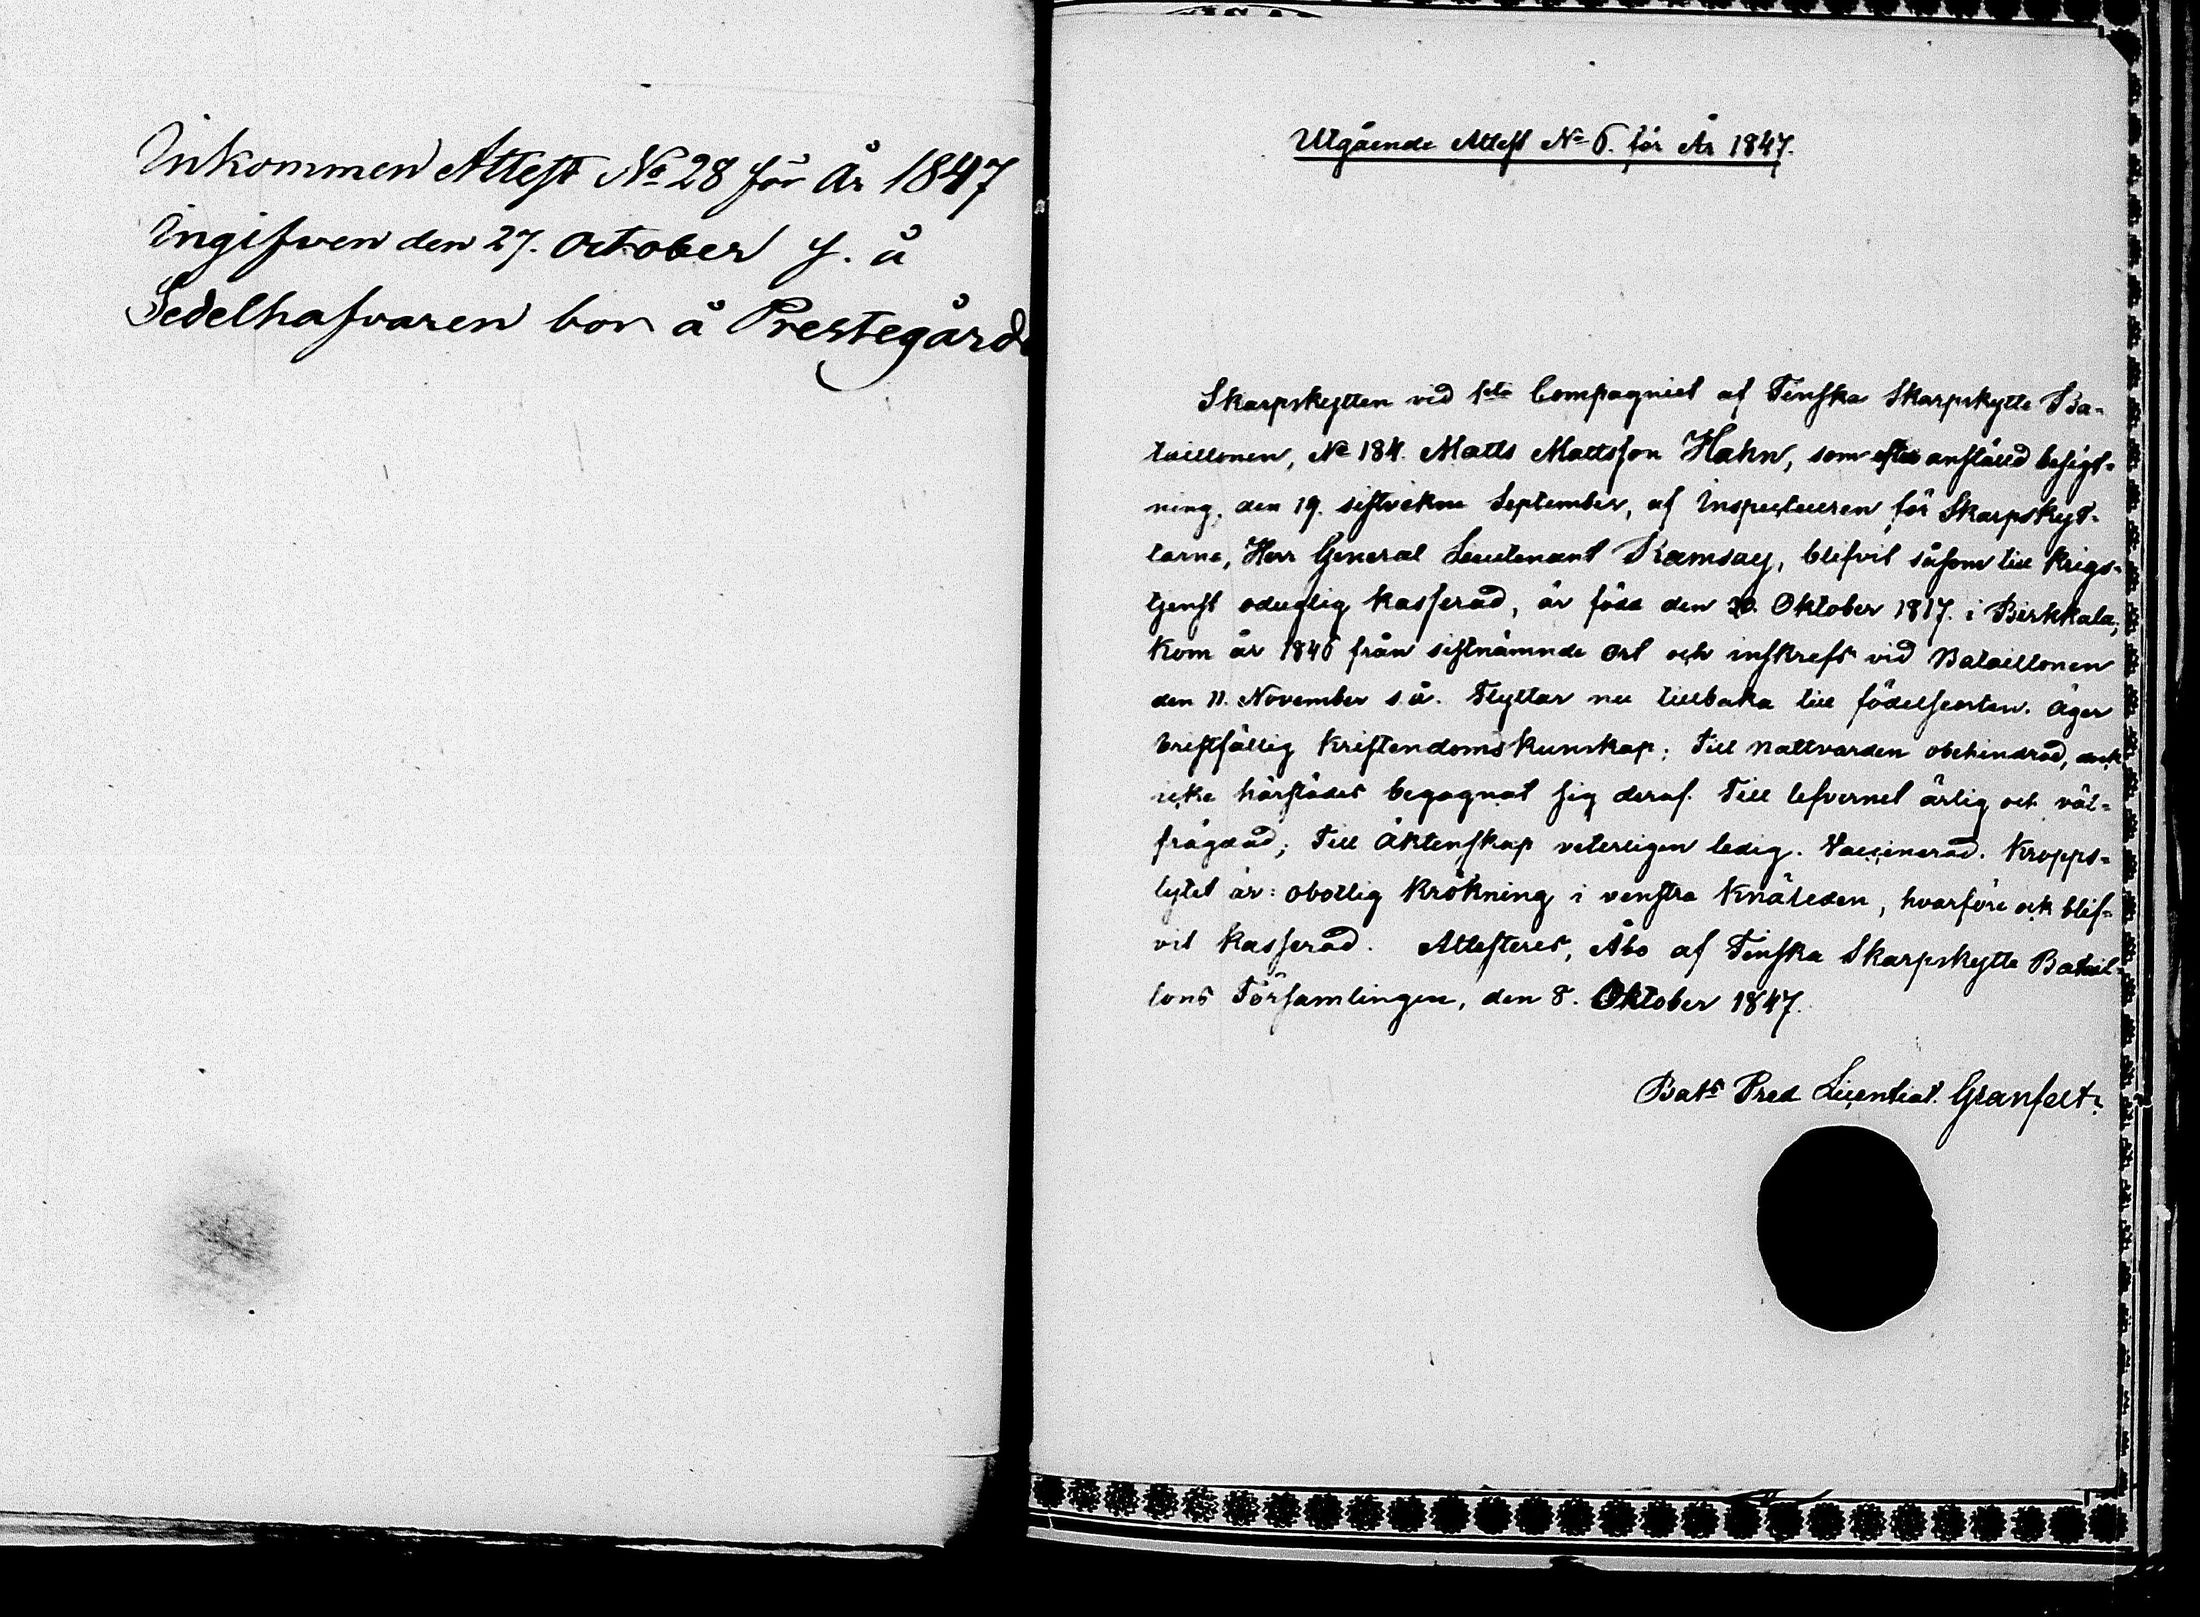 Inkommen Attest No 28 för År 1847
Ingifven den 27. October s. å
Sedelhafvaren bor å Prestegårde
Utgående Attest No 6. för År 1847.
Skarpskytten vid 1sta Compagniet af Finska Skarpskytte Ba-
taillonen, No 184. Matts Mattsson Hahn, som efter anstäld besigt-
ning, den 19. sistvekne September, af Inspecteuren för Skarpskyt-
tarne, Herr General Lieutenant Ramsay, blifvit såsom till Krigs-
tjenst oduglig kasserad, är född den 20. Oktober 1817. i Birkkala,
kom år 1846 från sistnämnde Ort och inskrefs vid Bataillonen
den 11. November s. å. Flyttar nu tillbaka till födelseorten. Äger
bristfällig Kristendomskunskap; Till nattvarden obehindrad, dock
icke härstädes begagnat sig deraf. Till lefvernet ärlig och väl-
frägdad; Till Äktenskap veterligen ledig. Vaccinerad. Kropps-
lytet är: obotlig krökning i venstra Knäleden, hvarföre ock blif-
vit kasserad. Attesteres, Åbo af Finska Skarpskytte Batail-
lons Församlingen, den 8. Oktober 1847.
Bats Pred Licentiat. Granfelt.